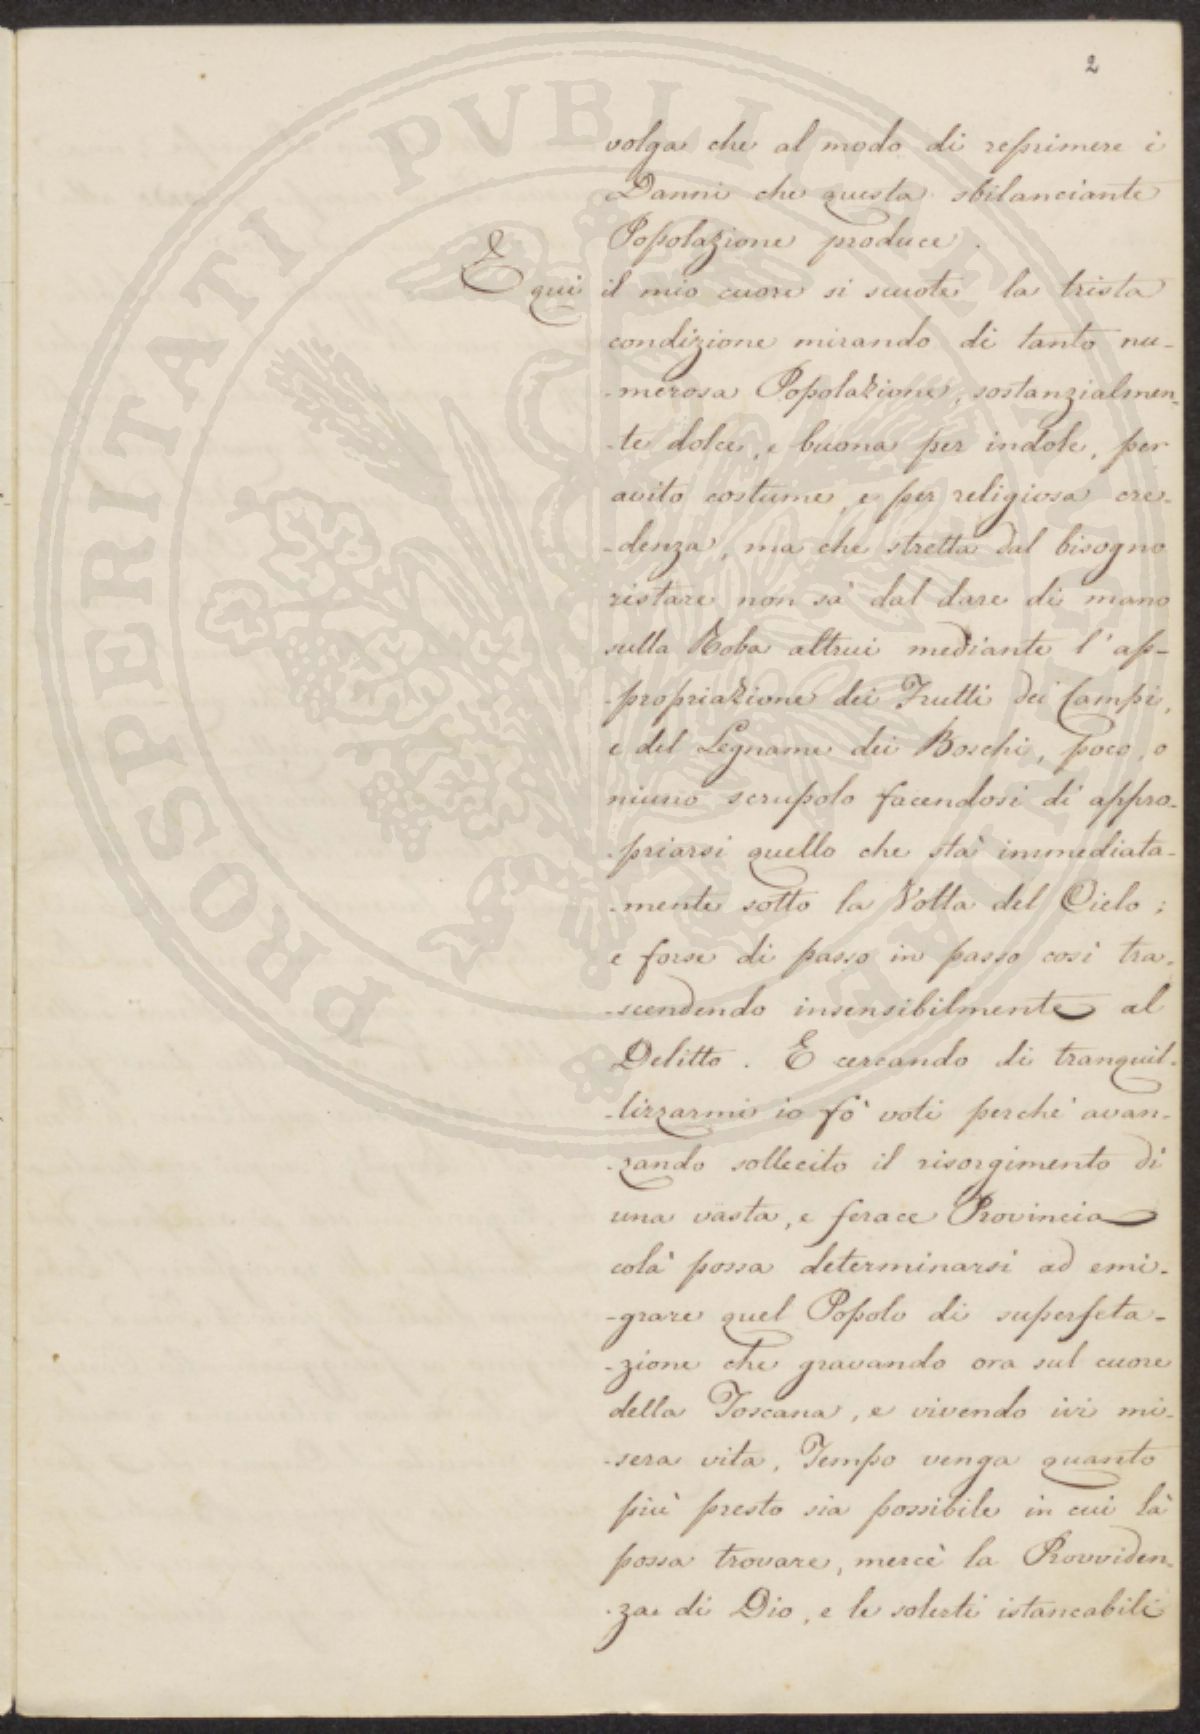 2
volga che al modo di reprimere i
Danni che questa sbilanciante
Popolazione produce.
E qui il mio cuore si scuote la trista
condizione mirando di tanto nu-
-merosa Popolazione, sostanzialmen-
-te dolce, e buona per indole, per
avito costume, e per religiosa cre-
-denza, ma che stretta dal bisogno
ristare non sà dal dare di mano
sulla Roba altrui mediante l'ap-
-propriazione dei Frutti dei Campi,
e del Legname dei Boschi, poco, o
niuno scrupolo facendosi di appro-
-priarsi quello che stà immediata-
-mente sotto la Volta del Cielo;
e forse di passo in passo così tra-
-scendendo insensibilmente al
Delitto. E cercando di tranquil-
-lizzarmi io fò voti perchè avan-
-zando sollecito il risorgimento di
una vasta, e ferace Provincia
colà possa determinarsi ad emi-
-grare quel Popolo di superfeta-
-zione che gravando ora sul cuore
della Toscana, e vivendo ivi mi-
-sera vita, Tempo venga quanto
più presto sia possibile in cui là
possa trovare, mercè la Provviden-
-za di Dio, e le solerti istancabili
PROSPERITATI PUBLICAE AUGENDAE